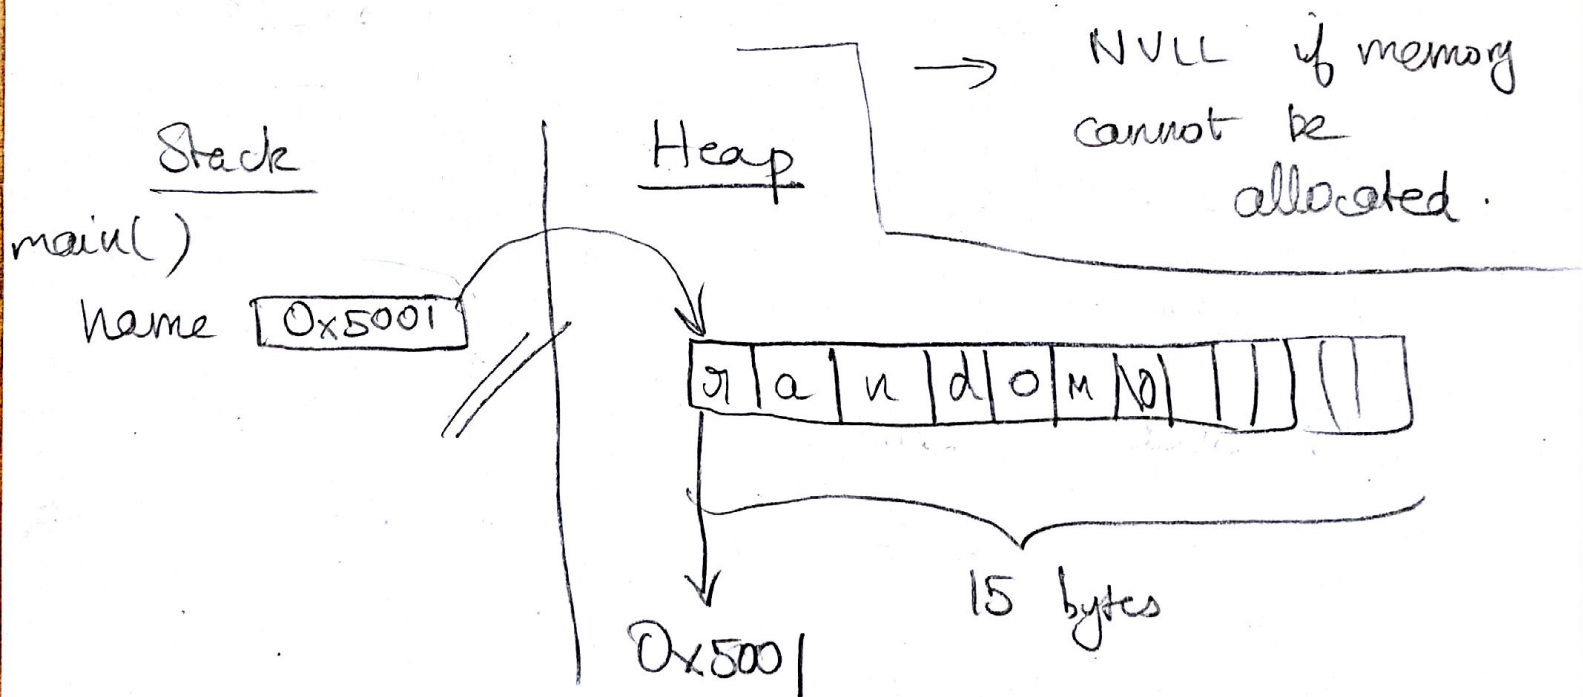 NULL if memory
cannot be
allocated.
Stack
Heap
main()
name 0x5001
r a n d o m \0
15 bytes
0x5001